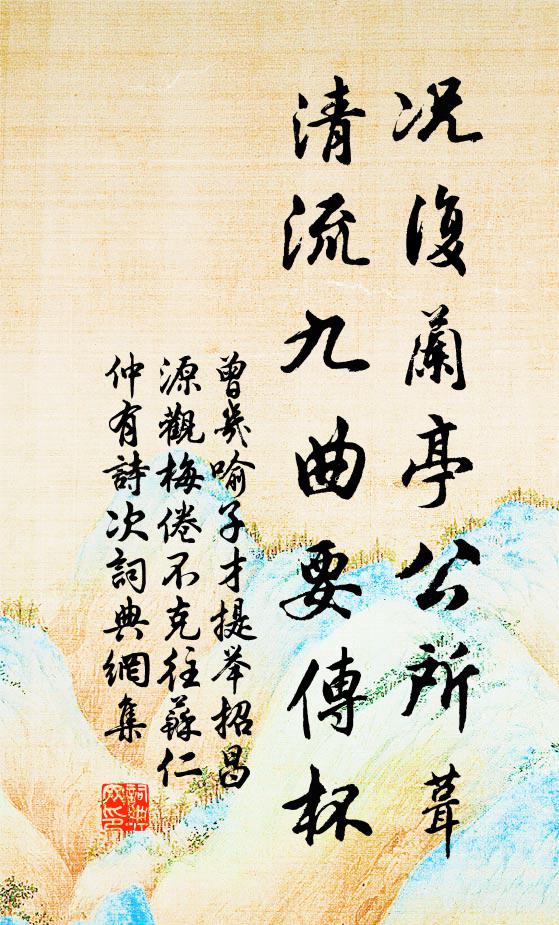 况復蘭亭公所葺
清流九曲要傳杯
曾幾喻子才提举招昌
源觀梅倦不克往蘇仁
仲有詩次詞典網集